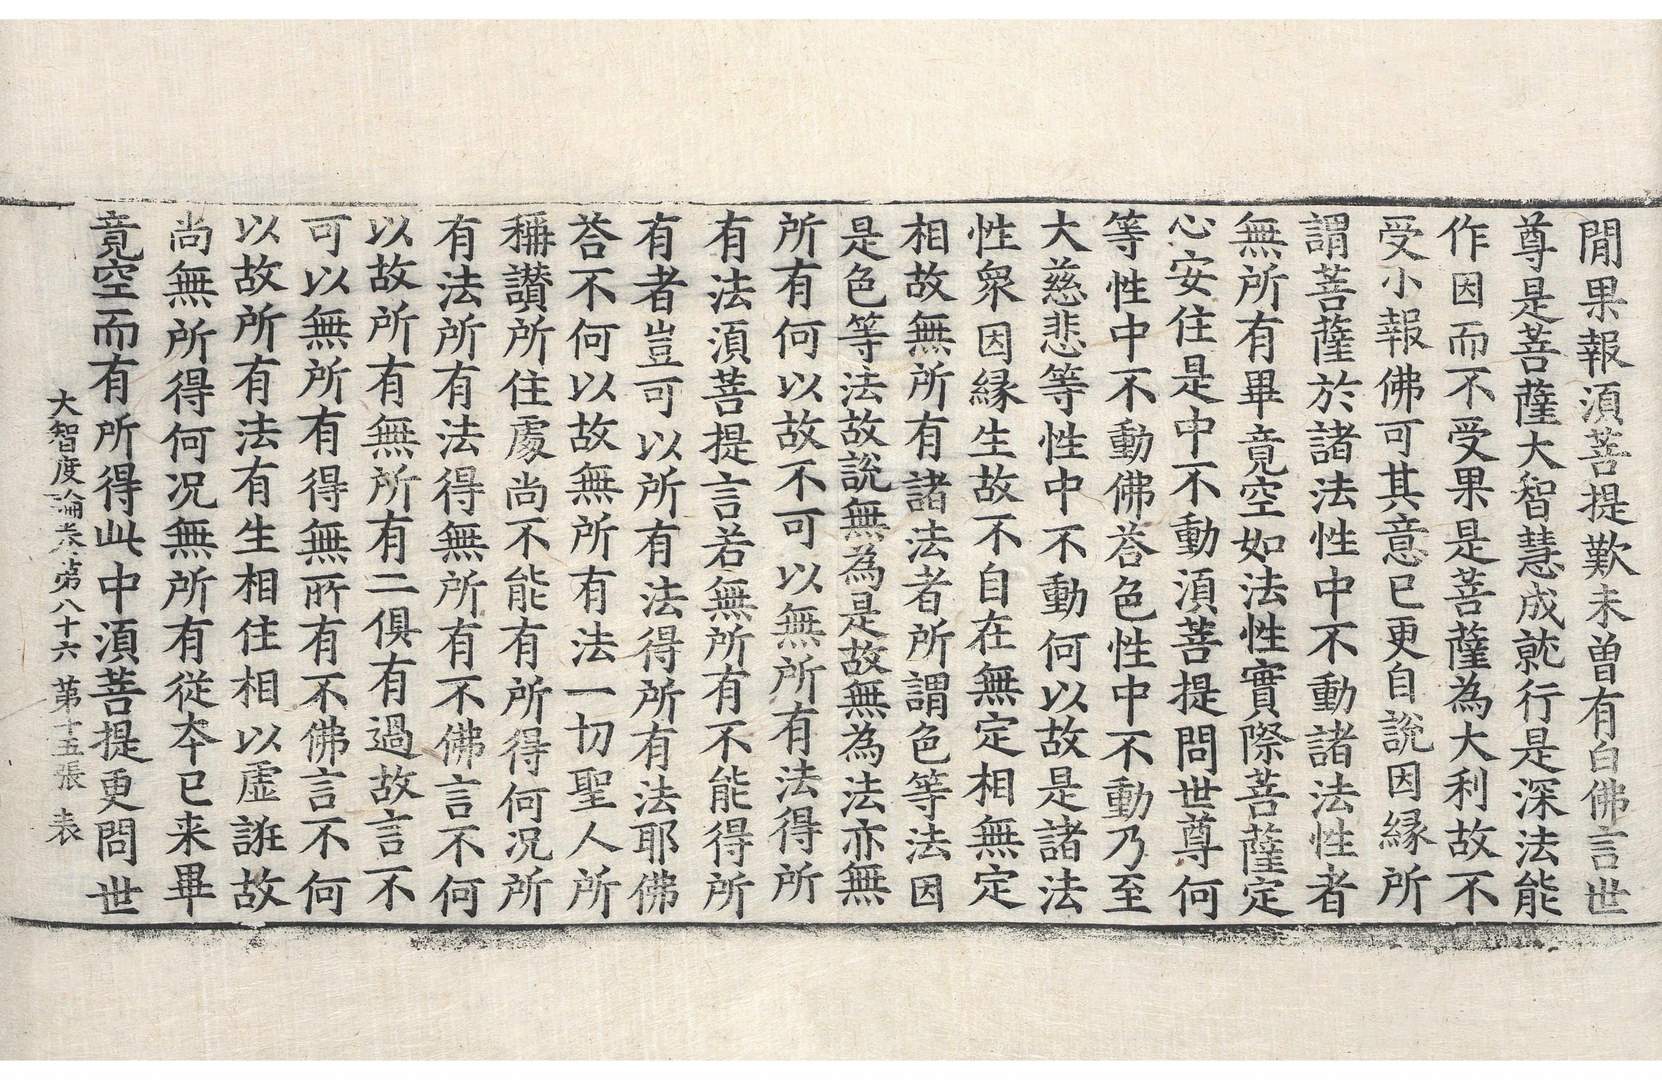 閒果報須菩提歎未曾有白佛言世
尊是菩薩大智慧成就行是深法能
作因而不受果是菩薩為大利故不
受小報佛可其意已更自說因緣所
謂菩薩於諸法性中不動諸法性者
無所有畢竟空如法性實際菩薩定
心安住是中不動須菩提問世尊何
等性中不動佛荅色性中不動乃至
大慈悲等性中不動何以故是諸法
性衆因緣生故不自在無定相無定
相故無所有諸法者所謂色等法因
是色等法故說無為是故無為法亦無
所有何以故不可以無所有法得所
有法須菩提言若無所有不能得所
有者豈可以所有法得所有法耶佛
荅不何以故無所有法一切聖人所
稱讃所住處尚不能有所得何况所
有法所有法得無所有不佛言不何
以故所有無所有二俱有過故言不
可以無所有得無所有不佛言不何
以故所有法有生相住相以虛誑故
尚無所得何况無所有從夲已来畢
竟空而有所得此中須菩提更問世
大智度論卷第八十六 第十五張 表